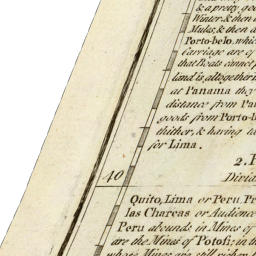 & a pretty goo
Winter. & then
Mules, & then a
Porto-belo, whic
Carriage are of
that Boats cannot
land is altogether
at Panama they
distance from Pan
goods from Porto-b
thither, & having
for Lima.
2. P
Divid
40
Quito, Lima or Peru, Pr
las Charcas or Audience
Peru abounds in Mines of
are the Mines of Potosi; in th
whose Mines are still richer th